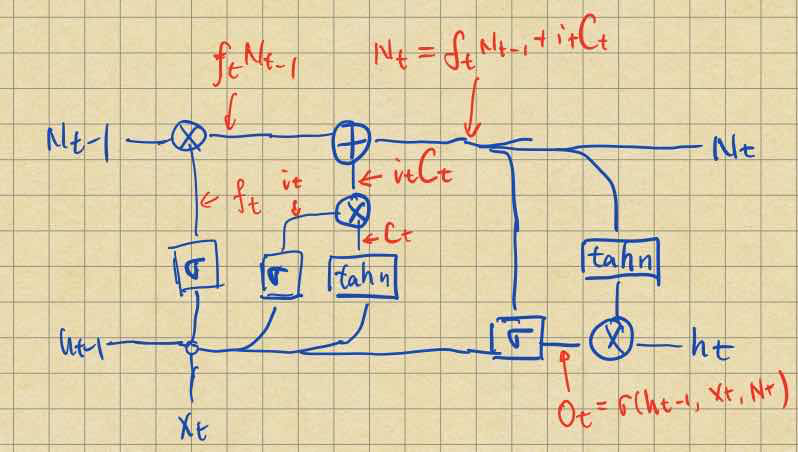 fₜNₜ₋₁
Nₜ = fₜNₜ₋₁ + iₜCₜ
Nₜ₋₁
⊗
⊕
Nₜ
← iₜCₜ
← fₜ
iₜ
⊗
← Cₜ
σ
σ
tahn
tahn
hₜ₋₁
σ
⊗
hₜ
Oₜ = σ(hₜ₋₁, xₜ, Nₜ)
Xₜ